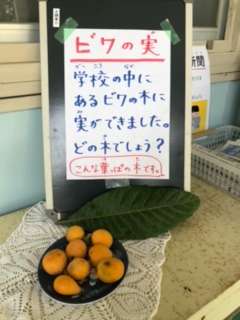 ビワの実
学校の中に
あるビワの木に
実ができました。
どの木でしょう？
こんな葉っぱの木です。
新聞